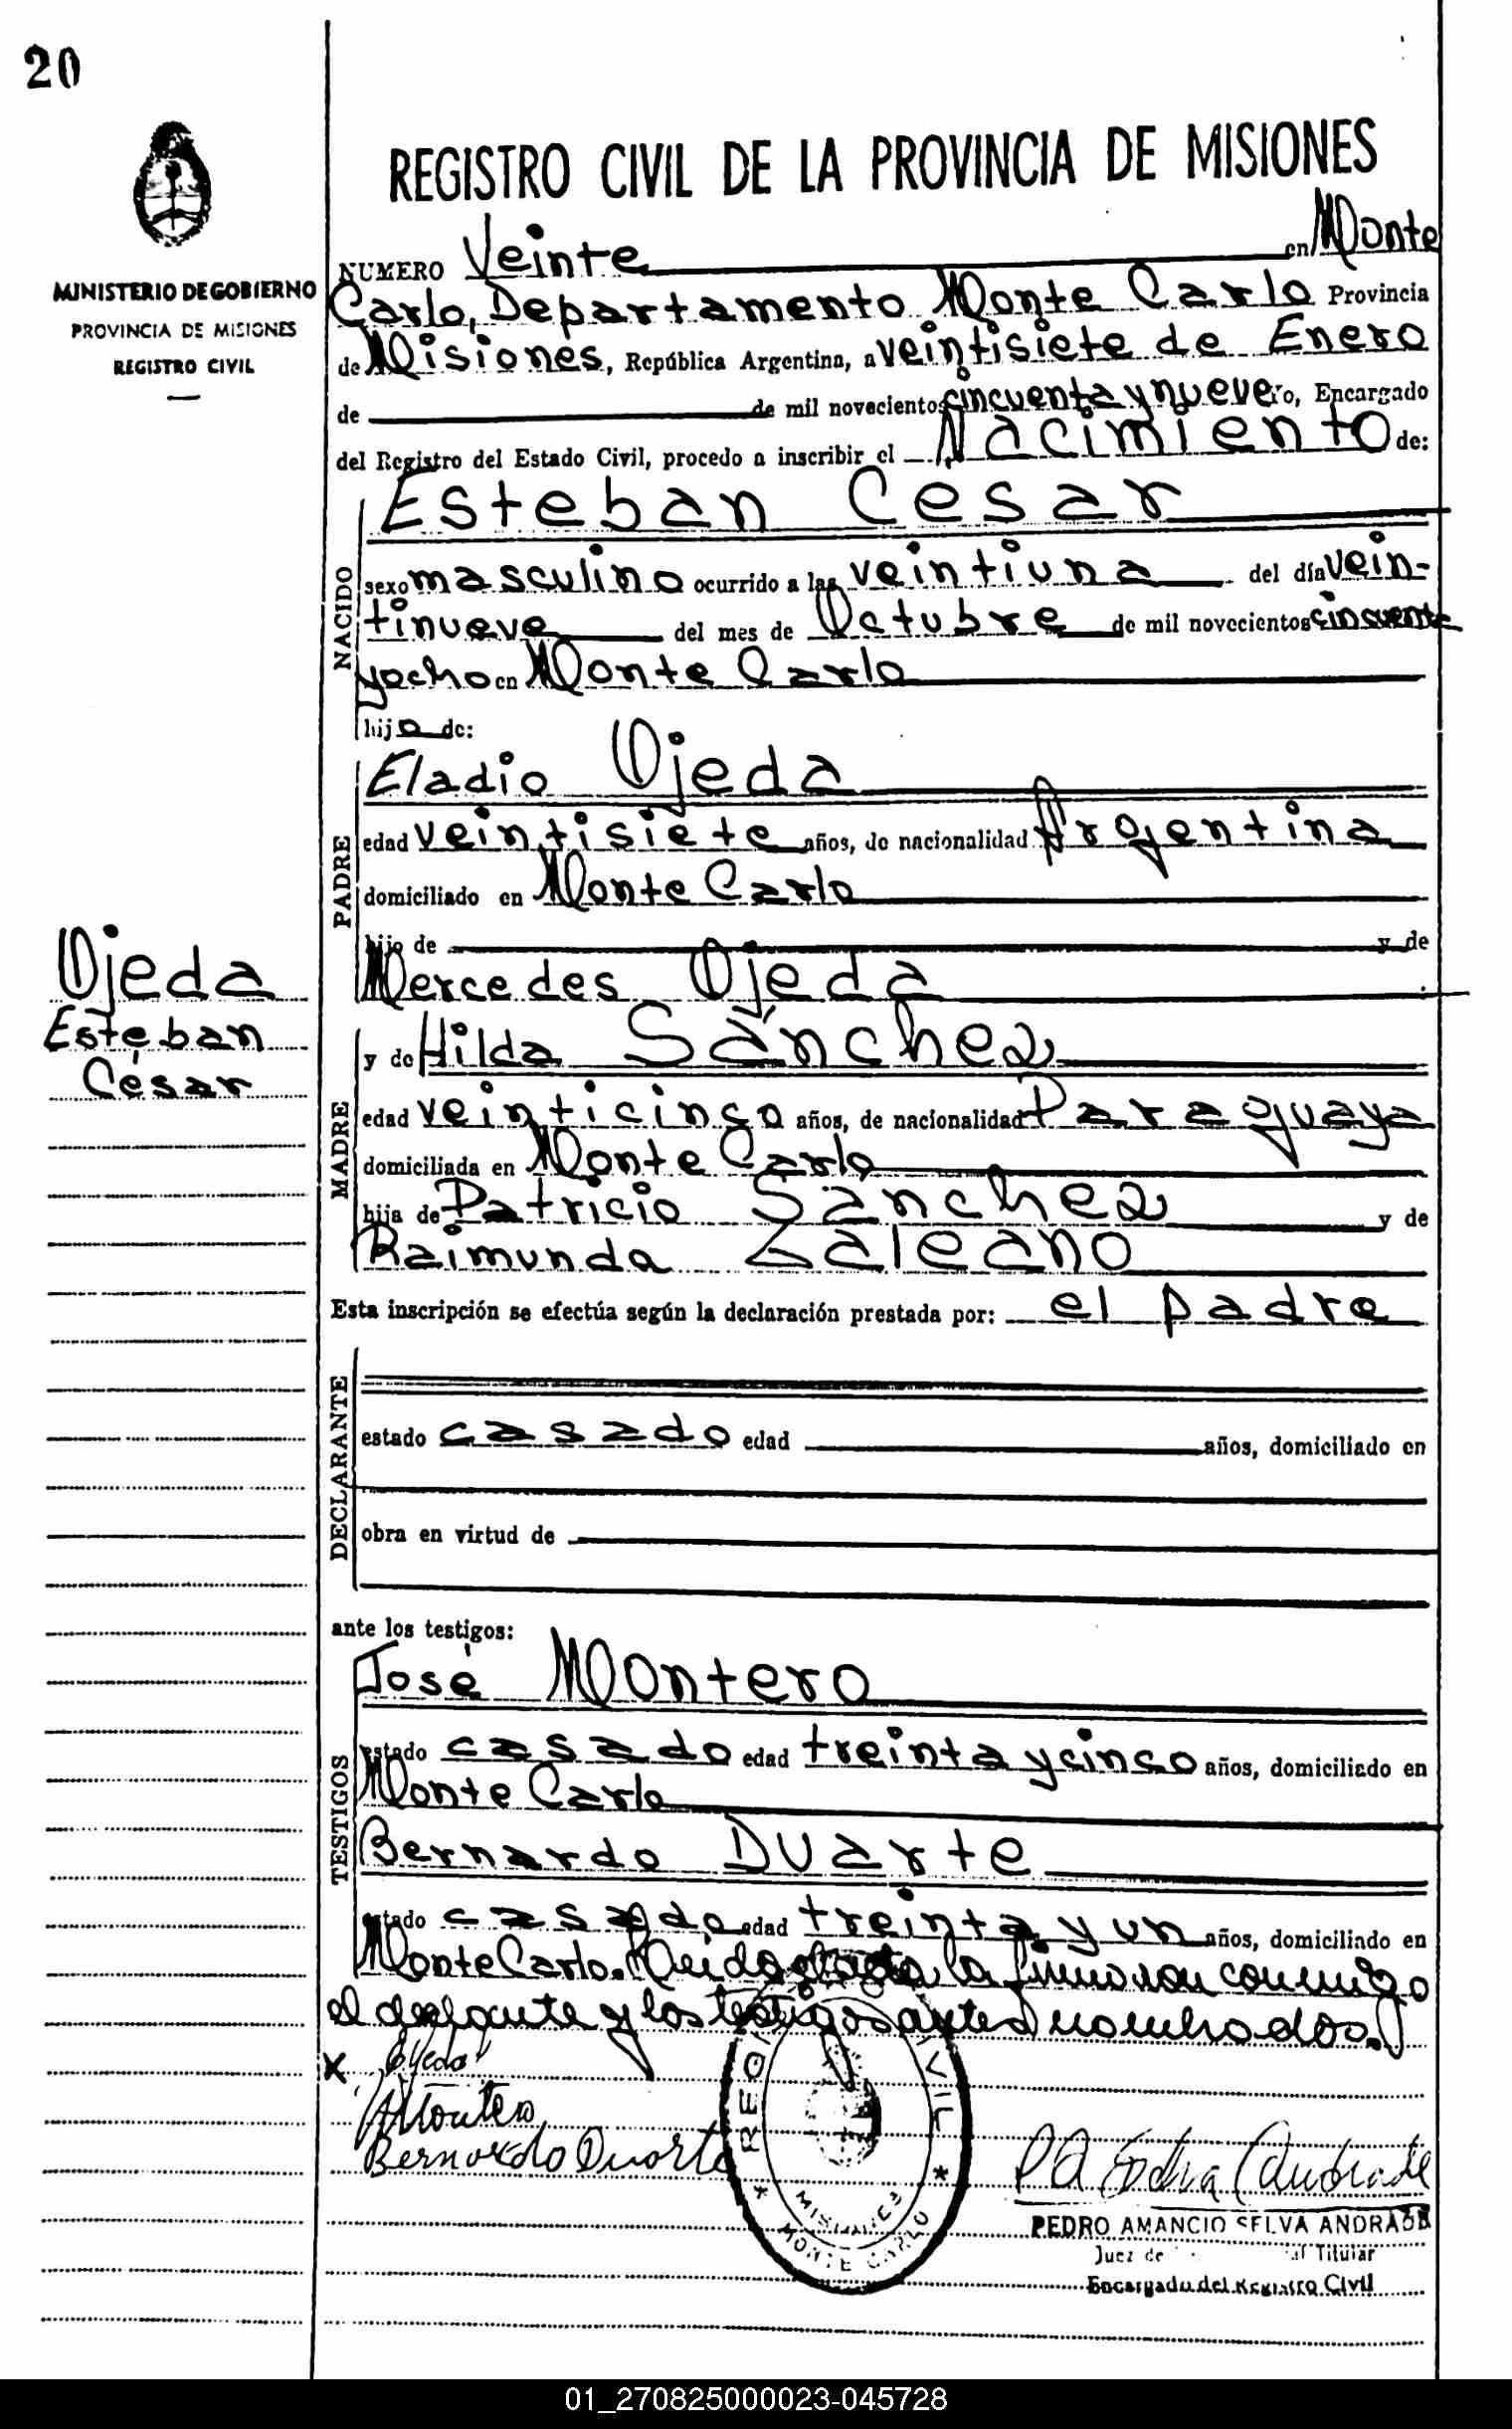 20
REGISTRO CIVIL DE LA PROVINCIA DE MISIONES
MINISTERIO DE GOBIERNO
PROVINCIA DE MISIONES
REGISTRO CIVIL
NUMERO Veinte en Monte
Carlo, Departamento Monte Carlo Provincia
de Misiones, República Argentina, a veintisiete de Enero
de de mil novecientos cincuenta y nueve ro, Encargado
del Registro del Estado Civil, procedo a inscribir el Nacimiento de:
NACIDO
Esteban Cesar
sexo masculino ocurrido a las veintiuna del día vein-
tinueve del mes de Octubre de mil novecientos cincuenta
y ocho en Monte Carlo
hijo de:
PADRE
Eladio Ojeda
edad veintisiete años, de nacionalidad Argentina
domiciliado en Monte Carlo
hijo de y de
Mercedes Ojeda
Ojeda
Esteban
César
MADRE
y de Hilda Sánchez
edad veinticinco años, de nacionalidad Paraguaya
domiciliada en Monte Carlo
hija de Patricio Sánchez y de
Raimunda Galeano
Esta inscripción se efectúa según la declaración prestada por: el padre
DECLARANTE
estado casado edad años, domiciliado en
obra en virtud de
ante los testigos:
TESTIGOS
José Montero
estado casado edad treinta y cinco años, domiciliado en
Monte Carlo
Bernardo Duarte
estado casado edad treinta y un años, domiciliado en
Monte Carlo. la firmaron conmigo
el y los testigos antes nombrados.
x Ojeda
Montero
Bernardo Duarte
REGISTRO CIVIL
MISIONES
MONTE CARLO
PEDRO AMANCIO SELVA ANDRADE
Juez de Titular
Encargado del Registro Civil
01_270825000023-045728